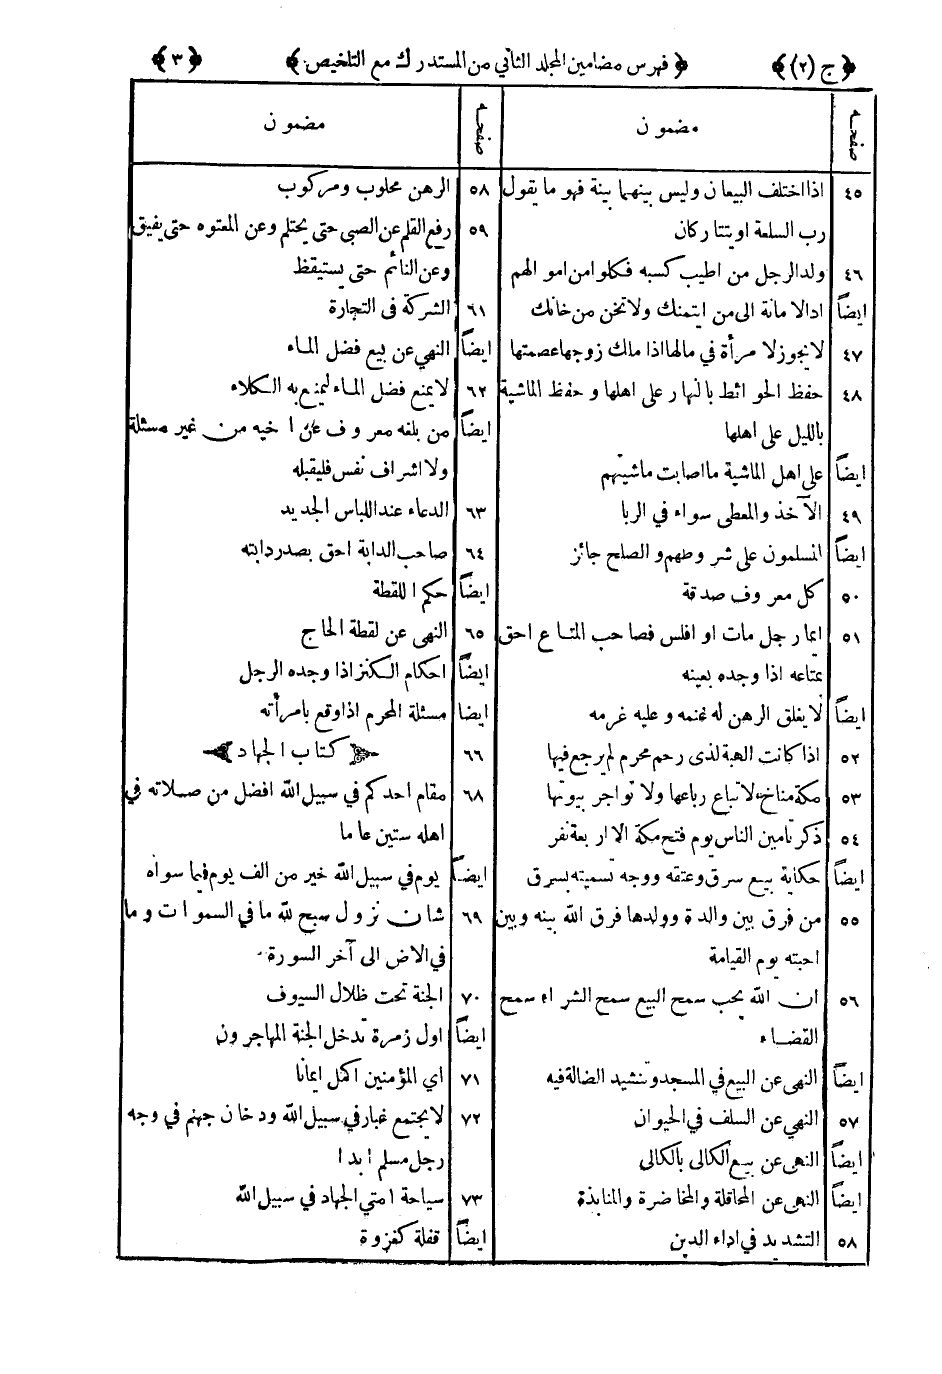 ﴿ ج (٢) ﴾ ﴿ فهرس مضامين المجلد الثاني من المستدرك مع التلخيص. ﴾ ﴿ ٣ ﴾
صفحه مضمون
٤٥ اذا اختلف البيعان وليس بينهما بينة فهو ما يقول
رب السلعة او يتتاركان
٤٦ ولد الرجل من اطيب كسبه فكلوا من اموالهم
ايضاً اد الامانة الى من ايتمنك ولا تخن من خانك
٤٧ لا يجوز لامرأة في مالها اذا ملك زوجها عصمتها
٤٨ حفظ الحوائط بالنهار على اهلها وحفظ الماشية
بالليل على اهلها
ايضاً على اهل الماشية ما اصابت ماشيتهم
٤٩ الآخذ والمعطى سواء في الربا
ايضاً المسلمون على شروطهم والصلح جائز
٥٠ كل معروف صدقة
٥١ ايما رجل مات او افلس فصاحب المتاع احق
بمتاعه اذا وجده بعينه
ايضاً لا يغلق الرهن له غنمه وعليه غرمه
٥٢ اذا كانت الهبة لذى رحم محرم لم يرجع فيها
٥٣ مكة مناخ لا تباع رباعها ولا تواجر بيوتها
٥٤ ذكر تامين الناس يوم فتح مكة الا اربعة نفر
ايضاً حكاية بيع سرق وعتقه ووجه تسميته بسرق
٥٥ من فرق بين والدة وولدها فرق الله بينه وبين
احبته يوم القيامة
٥٦ ان الله يحب سمح البيع سمح الشراء سمح
القضاء
ايضاً النهى عن البيع في المسجد وتنشيد الضالة فيه
٥٧ النهي عن السلف في الحيوان
ايضاً النهى عن بيع الكالى بالكالى
ايضاً النهى عن المحاقلة والمخاضرة والمنابذة
٥٨ التشديد في اداء الدين
صفحه مضمون
٥٨ الرهن محلوب ومركوب
٥٩ رفع القلم عن الصبى حتى يحتلم وعن المعتوه حتى يفيق
وعن النائم حتى يستيقظ
٦١ الشركة فى التجارة
ايضاً النهي عن بيع فضل الماء
٦٢ لا يمنع فضل الماء ليمنع به الكلاء
ايضاً من بلغه معروف عن اخيه من غير مسئلة
ولا اشراف نفس فليقبله
٦٣ الدعاء عند اللباس الجديد
٦٤ صاحب الدابة احق بصدر دابته
ايضاً حكم اللقطة
٦٥ النهى عن لقطة الحاج
ايضاً احكام الكنز اذا وجده الرجل
ايضا مسئلة المحرم اذا وقع بامرأته
٦٦ كتاب الجهاد
٦٨ مقام احدكم في سبيل الله افضل من صلاته في
اهله ستين عاما
ايضاً يوم في سبيل الله خير من الف يوم فيما سواه
٦٩ شان نزول سبح لله ما في السموات وما
في الاض الى آخر السورة
٧٠ الجنة تحت ظلال السيوف
ايضاً اول زمرة تدخل الجنة المهاجرون
٧١ اي المؤمنين اكمل ايمانا
٧٢ لا يجتمع غبار في سبيل الله ودخان جهنم في وجه
رجل مسلم ابدا
٧٣ سياحة امتي الجهاد في سبيل الله
ايضاً قفلة كغزوة